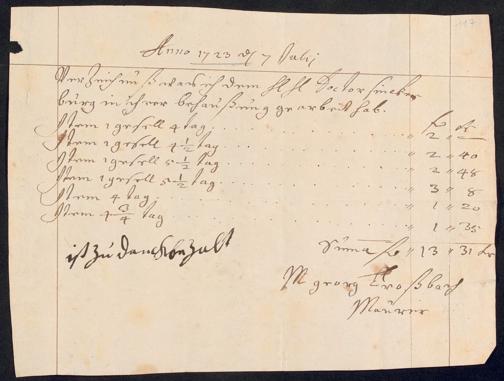 Anno 1723 d 7 Julij
Verzeichnuß was ich dem Hl Hl Doctor
burg in ihrer behaußung gearbeit hab.
fl kr
Item 1 gesell 4 tag . . . " 2 " —
Item 1 gesell 4 1/2 tag . . . " 2 " 40
Item 1 gesell 5 1/2 tag . . . " 2 " 48
Item 1 gesell 5 1/2 tag . . . " 3 " 8
Item 4 tag . . . " 1 " 20
Item 4 3/4 tag . . . " 1 " 35
Suma fl " 13 " 31 kr
ist zu danckh bezalt
M georg Troßbach
Maurer